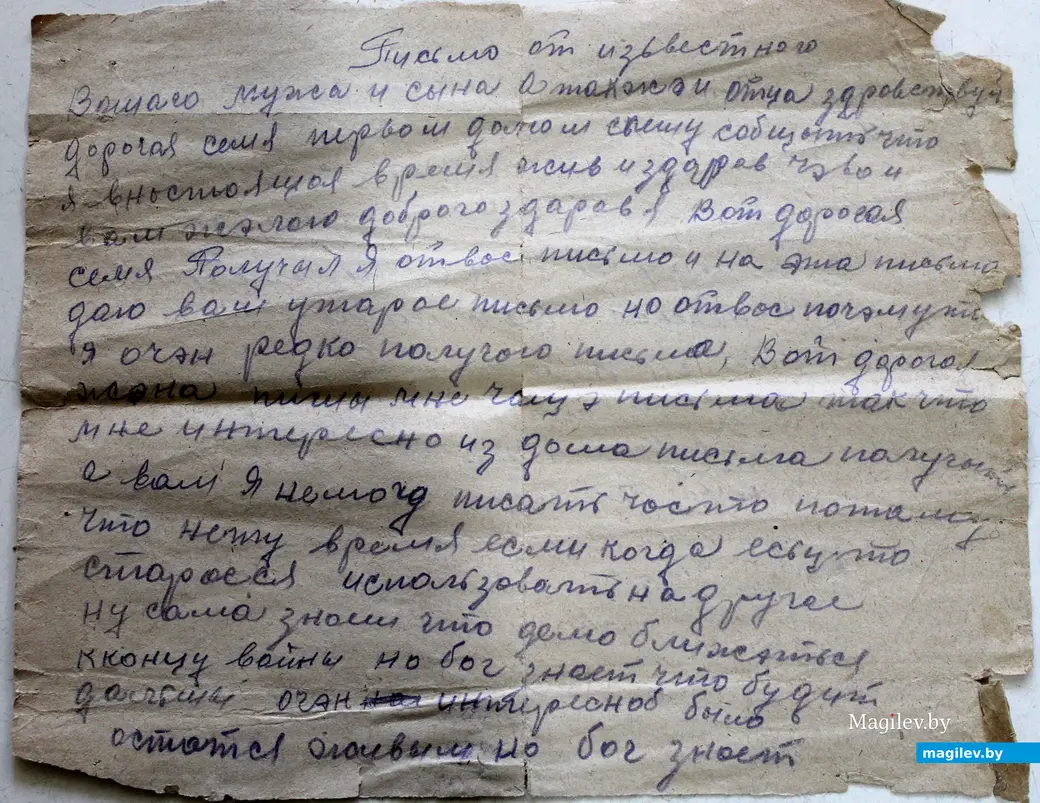 Письмо от изьвестного
Вашаго мужа и сына а также и отца здровствуй
дорогая семя первом долгом спешу собщыть что
я вностоящоя время жив и здаров чэво и
вам жэлаю доброго здаровя Вот дорогая
семя Получил я отвос письмо и на эта письмо
даю вам уторое письмо но отвос почэмуто
я очэн редко получаю письма, Вот дорогая
жэна пишы мне чащэ письма так что
мне интересно из дома письма палучыть
а вам я немогу писать чосто потаму
что нету время если когда есьцьто
стараеся использовать на другое
ну сама знаеш что дело ближэться
кконцу войны но бог знает что будит
дальшы очэн интересноб было
остатся жывым но бог знает
Magilev.by
magilev.by